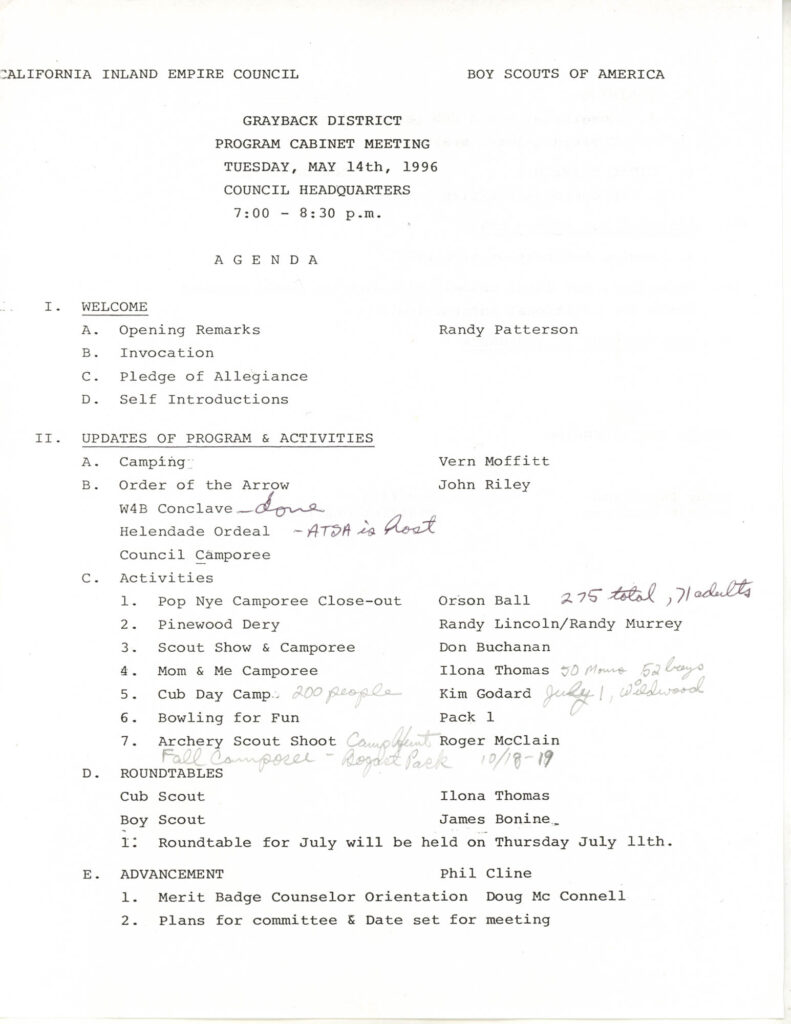 CALIFORNIA INLAND EMPIRE COUNCIL BOY SCOUTS OF AMERICA
GRAYBACK DISTRICT
PROGRAM CABINET MEETING
TUESDAY, MAY 14th, 1996
COUNCIL HEADQUARTERS
7:00 - 8:30 p.m.
A G E N D A
I. WELCOME
A. Opening Remarks Randy Patterson
B. Invocation
C. Pledge of Allegiance
D. Self Introductions
II. UPDATES OF PROGRAM & ACTIVITIES
A. Camping Vern Moffitt
B. Order of the Arrow John Riley
W4B Conclave - done
Helendade Ordeal - ATSA is host
Council Camporee
C. Activities
1. Pop Nye Camporee Close-out Orson Ball 275 total, 71 adults
2. Pinewood Dery Randy Lincoln/Randy Murrey
3. Scout Show & Camporee Don Buchanan
4. Mom & Me Camporee Ilona Thomas 50 Moms 52 boys
5. Cub Day Camp 200 people Kim Godard July 1, Wildwood
6. Bowling for Fun Pack 1
7. Archery Scout Shoot Camp Roger McClain
Fall Camporee - Park 10/18-19
D. ROUNDTABLES
Cub Scout Ilona Thomas
Boy Scout James Bonine
1: Roundtable for July will be held on Thursday July 11th.
E. ADVANCEMENT Phil Cline
1. Merit Badge Counselor Orientation Doug Mc Connell
2. Plans for committee & Date set for meeting